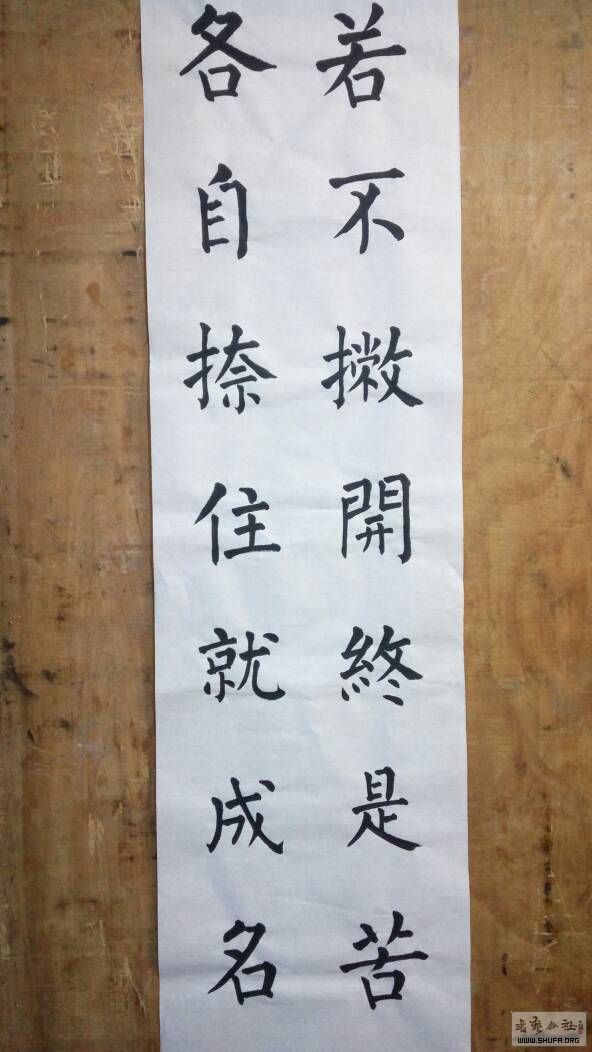 若不撇開終是苦
各自捺住就成名
書藝公社
WWW.SHUFA.ORG